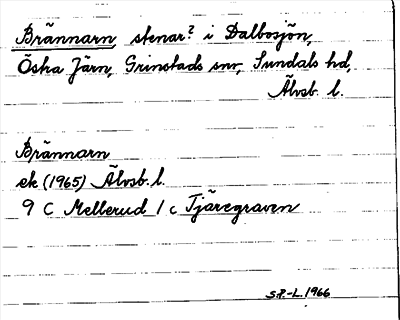 Brännarn, stenar? i Dalbosjön,
Östra Järn, Grinstads snr, Sundals hd,
Älvsb. l.
Brännarn
ek (1965) Älvsb. l.
9 C Mellerud 1 c Tjäregraven
S.F.-L. 1966